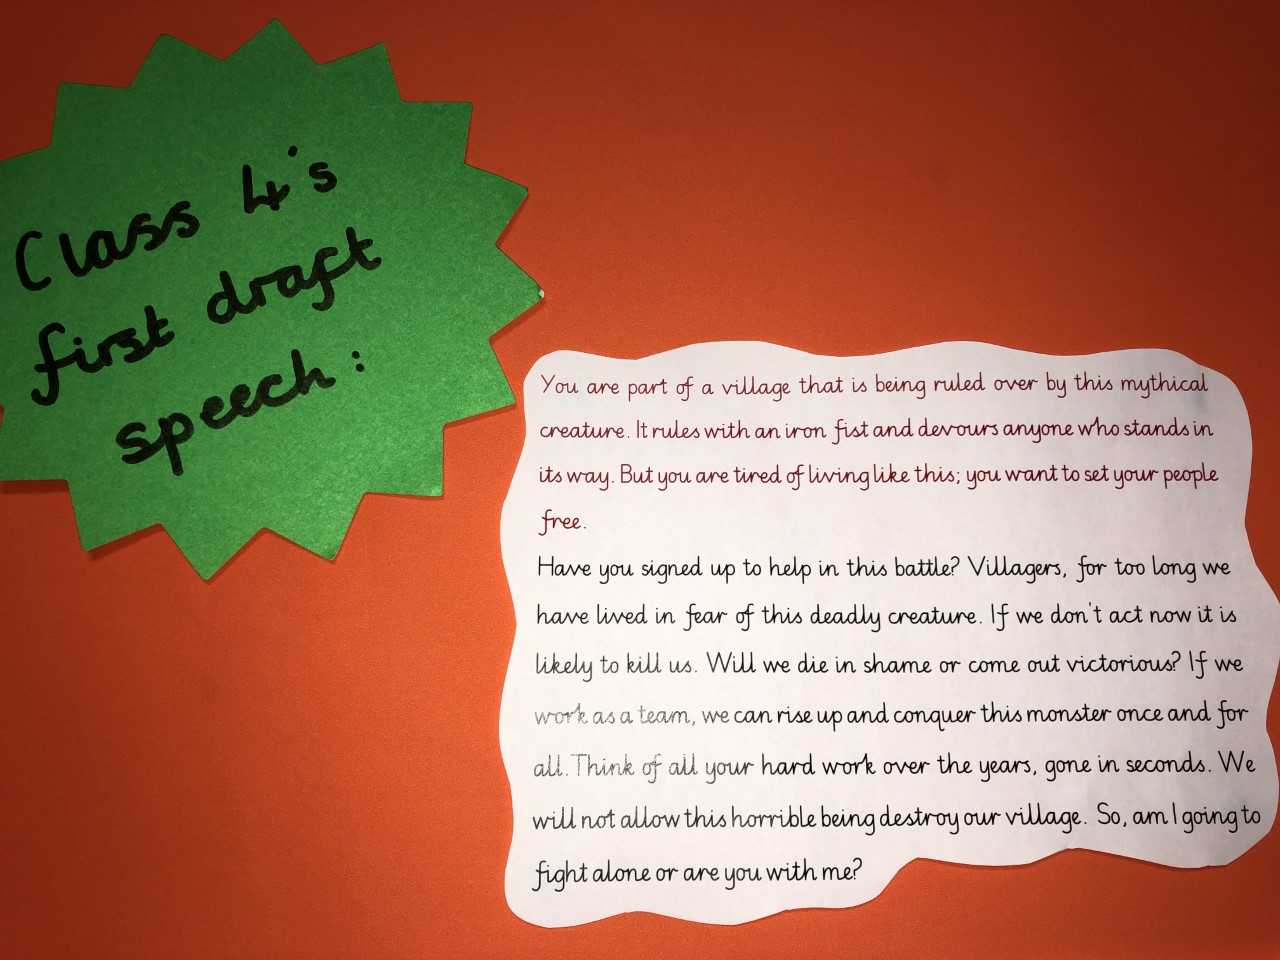 Class 4's
first draft
speech:
You are part of a village that is being ruled over by this mythical
creature. It rules with an iron fist and devours anyone who stands in
its way. But you are tired of living like this; you want to set your people
free.
Have you signed up to help in this battle? Villagers, for too long we
have lived in fear of this deadly creature. If we don't act now it is
likely to kill us. Will we die in shame or come out victorious? If we
work as a team, we can rise up and conquer this monster once and for
all. Think of all your hard work over the years, gone in seconds. We
will not allow this horrible being destroy our village. So, am I going to
fight alone or are you with me?